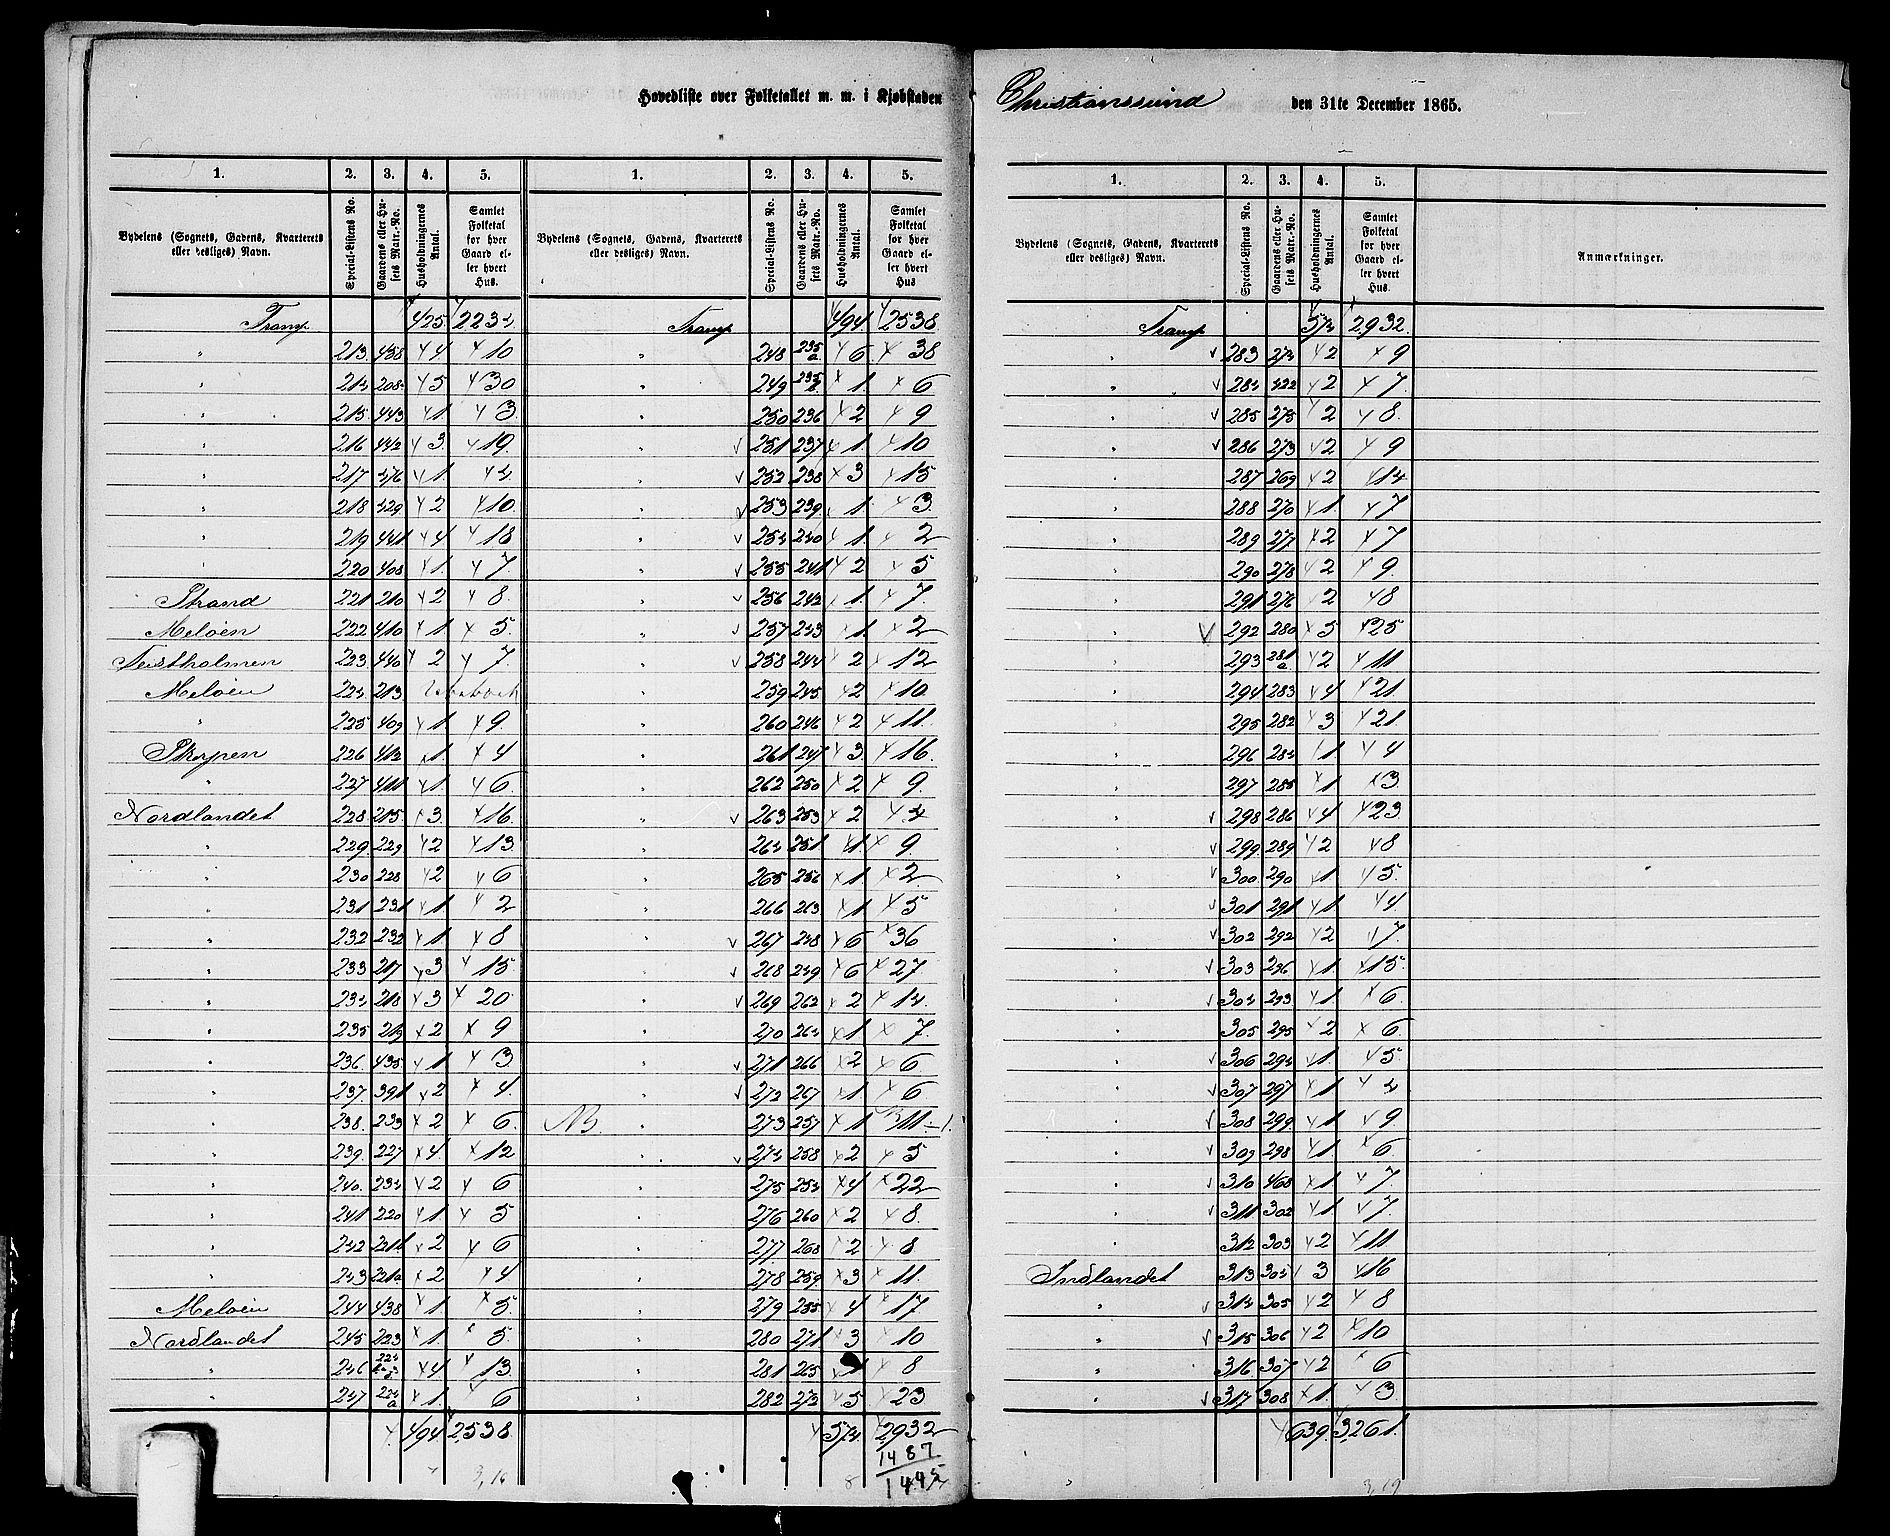 Hovedliste over Folketallet m. m. i Kjøbstaden Christianssund den 31te December 1865.
1. 2. 3. 4. 5. 1. 2. 3. 4. 5. 1. 2. 3. 4. 5.
Bydelens (Sognets, Gadens, Kvarterets eller desliges) Navn. Special-Listens No. Gaardens eller Husets Matr.-No. Husholdningernes Antal. Samlet Folketal for hver Gaard eller hvert Hus.
Bydelens (Sognets, Gadens, Kvarterets eller desliges) Navn. Special-Listens No. Gaardens eller Husets Matr.-No. Husholdningernes Antal. Samlet Folketal for hver Gaard eller hvert Hus
Bydelens (Sognets, Gadens, Kvarterets eller desliges) Navn. Special-Listens No. Gaardens eller Husets Matr.-No. Husholdningernes Antal. Samlet Folketal for hver Gaard eller hvert Hus. Anmærkninger.
Transp 425 2234
" 213 458 4 10
" 214 208 5 30
" 215 443 1 3
" 216 442 3 19
" 217 476 1 4
" 218 429 2 10
" 219 441 4 18
" 220 408 1 7
Strand 221 210 2 8
Meløen 222 410 1 5
Feistholmen 223 440 2 7
Meløen 224 213
" 225 409 1 9
Skorpen 226 412 1 4
" 227 411 1 6
Nordlandet 228 215 3 16
" 229 229 2 13
" 230 228 2 6
" 231 231 1 2
" 232 232 1 8
" 233 217 3 15
" 234 218 3 20
" 235 219 2 9
" 236 435 1 3
" 237 391 2 4
" 238 233 2 6
" 239 227 4 12
" 240 234 2 6
" 241 220 1 5
" 242 221b 2 6
" 243 221a 2 4
Meløen 244 438 1 5
Nordlandet 245 223 1 5
" 246 4 13
" 247 224a 1 6
494 2538
Transp 494 2538
" 248 235a 6 38
" 249 235b 1 6
" 250 236 2 9
" 251 237 1 10
" 252 238 3 15
" 253 239 1 3
" 254 240 1 2
" 255 241 2 5
" 256 242 1 7
" 257 243 1 2
" 258 244 2 12
" 259 245 2 10
" 260 246 2 11
" 261 247 3 16
" 262 250 2 9
" 263 253 2 4
" 264 251 1 9
" 265 256 1 2
" 266 263 1 5
" 267 248 6 36
" 268 249 6 27
" 269 262 2 14
" 270 264 1 7
" 271 266 2 6
" 272 267 1 6
NB. " 273 257 1 11 - 1.
" 274 258 2 5
" 275 254 4 22
" 276 260 2 8
" 277 268 2 8
" 278 259 3 11
" 279 255 4 17
" 280 271 3 10
" 281 265 8
" 282 272 5 23
574 2932
1487
1445
Transp 574 2932
" 283 274 2 9
" 284 422 2 7
" 285 275 2 8
" 286 273 2 9
" 287 269 2 14
" 288 270 1 7
" 289 277 2 7
" 290 278 2 9
" 291 276 2 8
" 292 280 5 25
" 293 281a 2 11
" 294 283 4 21
" 295 282 3 21
" 296 284 1 4
" 297 285 1 3
" 298 286 4 23
" 299 289 2 8
" 300 290 1 5
" 301 291 1 4
" 302 292 2 7
" 303 296 1 15
" 304 293 1 6
" 305 295 2 6
" 306 294 1 5
" 307 297 1 4
" 308 299 1 9
" 309 298 1 6
" 310 468 1 7
" 311 302 1 7
" 312 303 2 11
Indlandet 313 304 3 16
" 314 305 2 8
" 315 306 2 10
" 316 307 2 6
" 317 308 1 3
639 3261
3,16
3,19